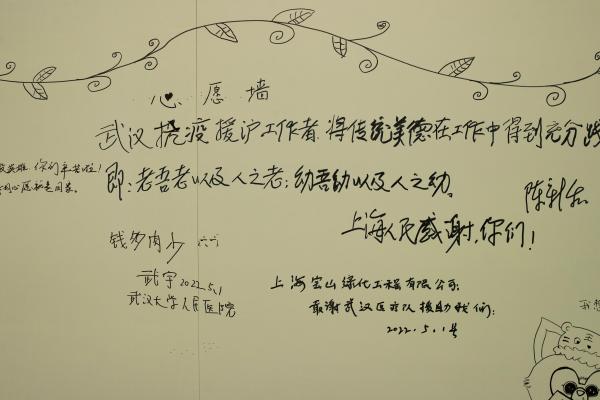 心愿墙
武汉抗疫援沪工作者，将传统美德在工作中得到充分践
你们辛苦啦！
即：老吾老以及人之老；幼吾幼以及人之幼。
陈新
上海人民感谢你们！
钱多肉少
武宇 2022.5.1
武汉大学人民医院
上海宝山绿化工程有限公司：
感谢武汉医疗队援助我们：
2022.5.1号
我想